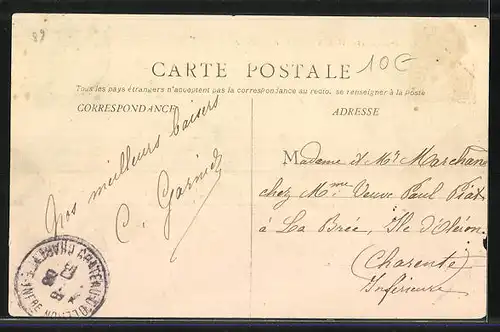 89
CARTE POSTALE
10€
Tous les pays étrangers n'acceptent pas la correspondance au recto. se renseigner à la poste
CORRESPONDANCE
ADRESSE
Nos meilleurs baisers
C. Garnier
Madame et Mr Marchan
chez Mme Veuve Paul Piat
à La Brée, Ile d'Oléron
(Charente
Inférieure